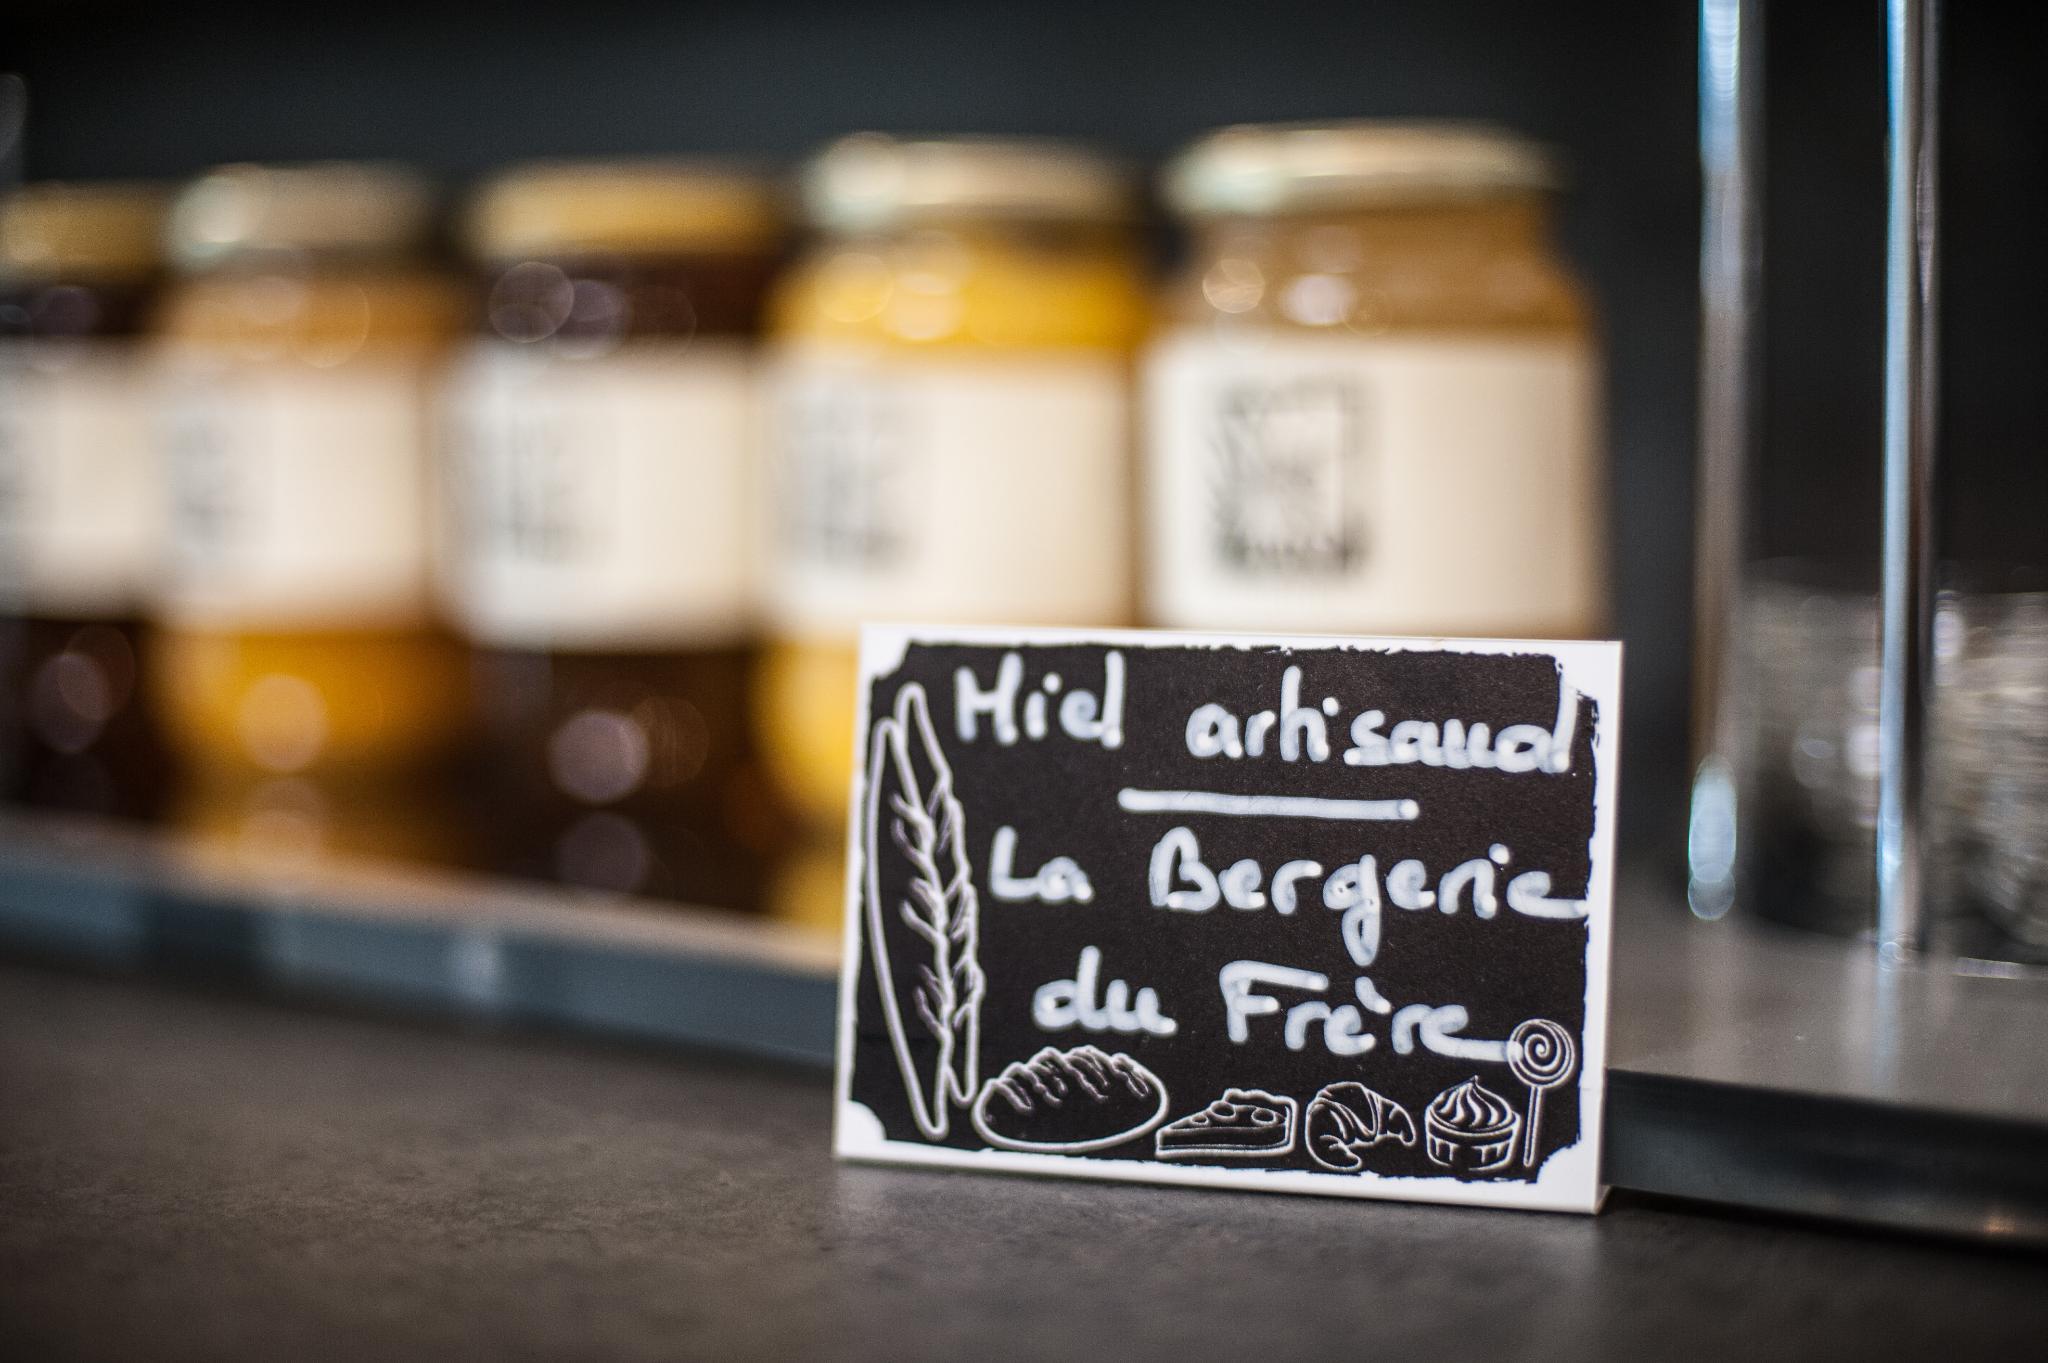 Miel artisaud
La Bergerie
du Frère